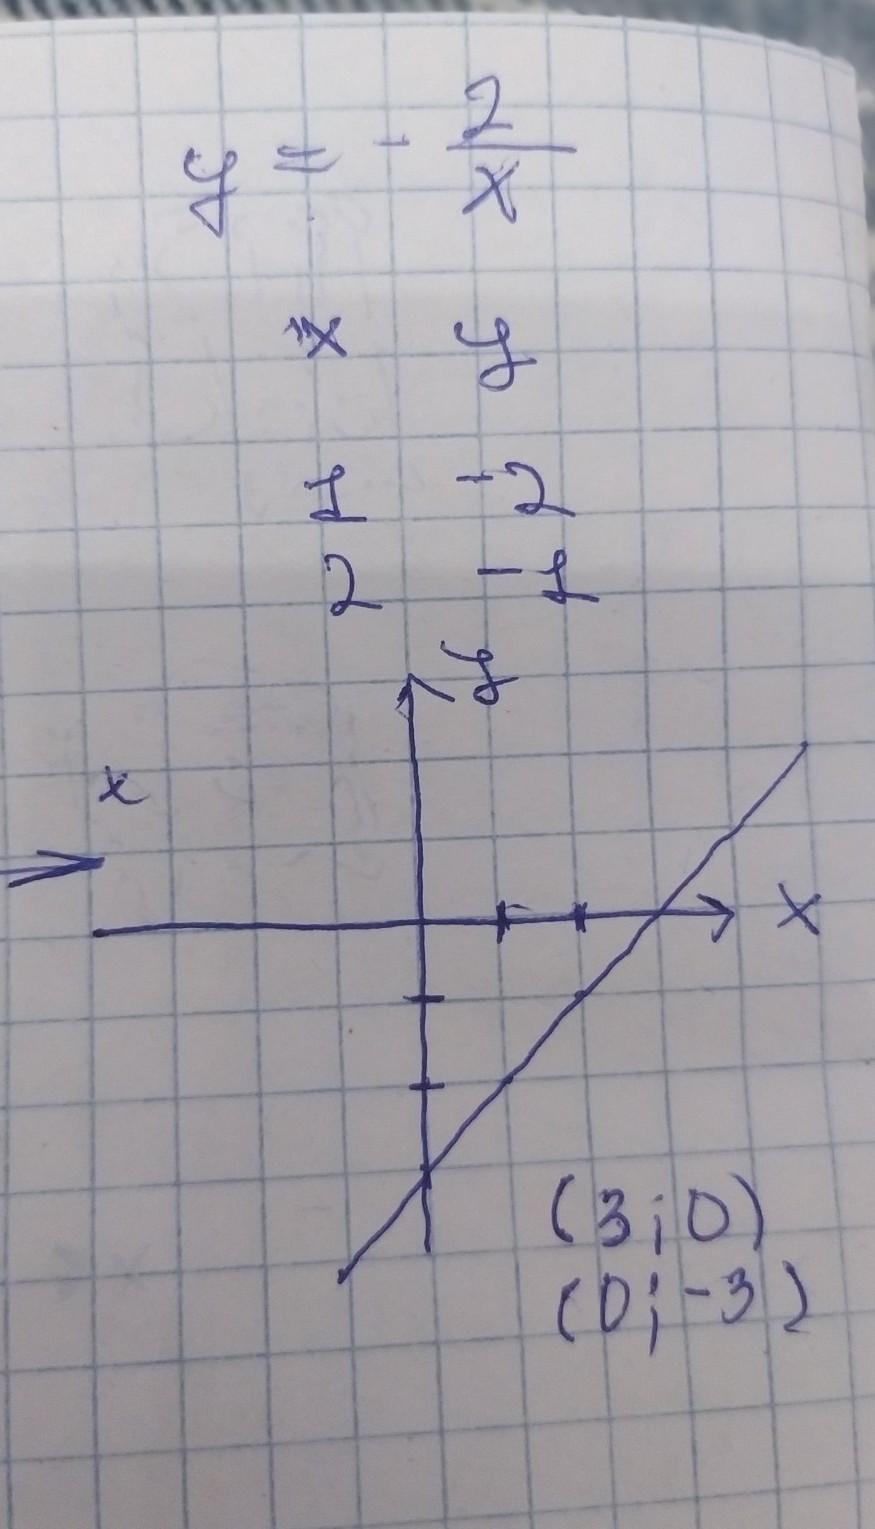 y = - 2/x
x y
1 -2
2 -1
y
x
X
(3;0)
(0;-3)